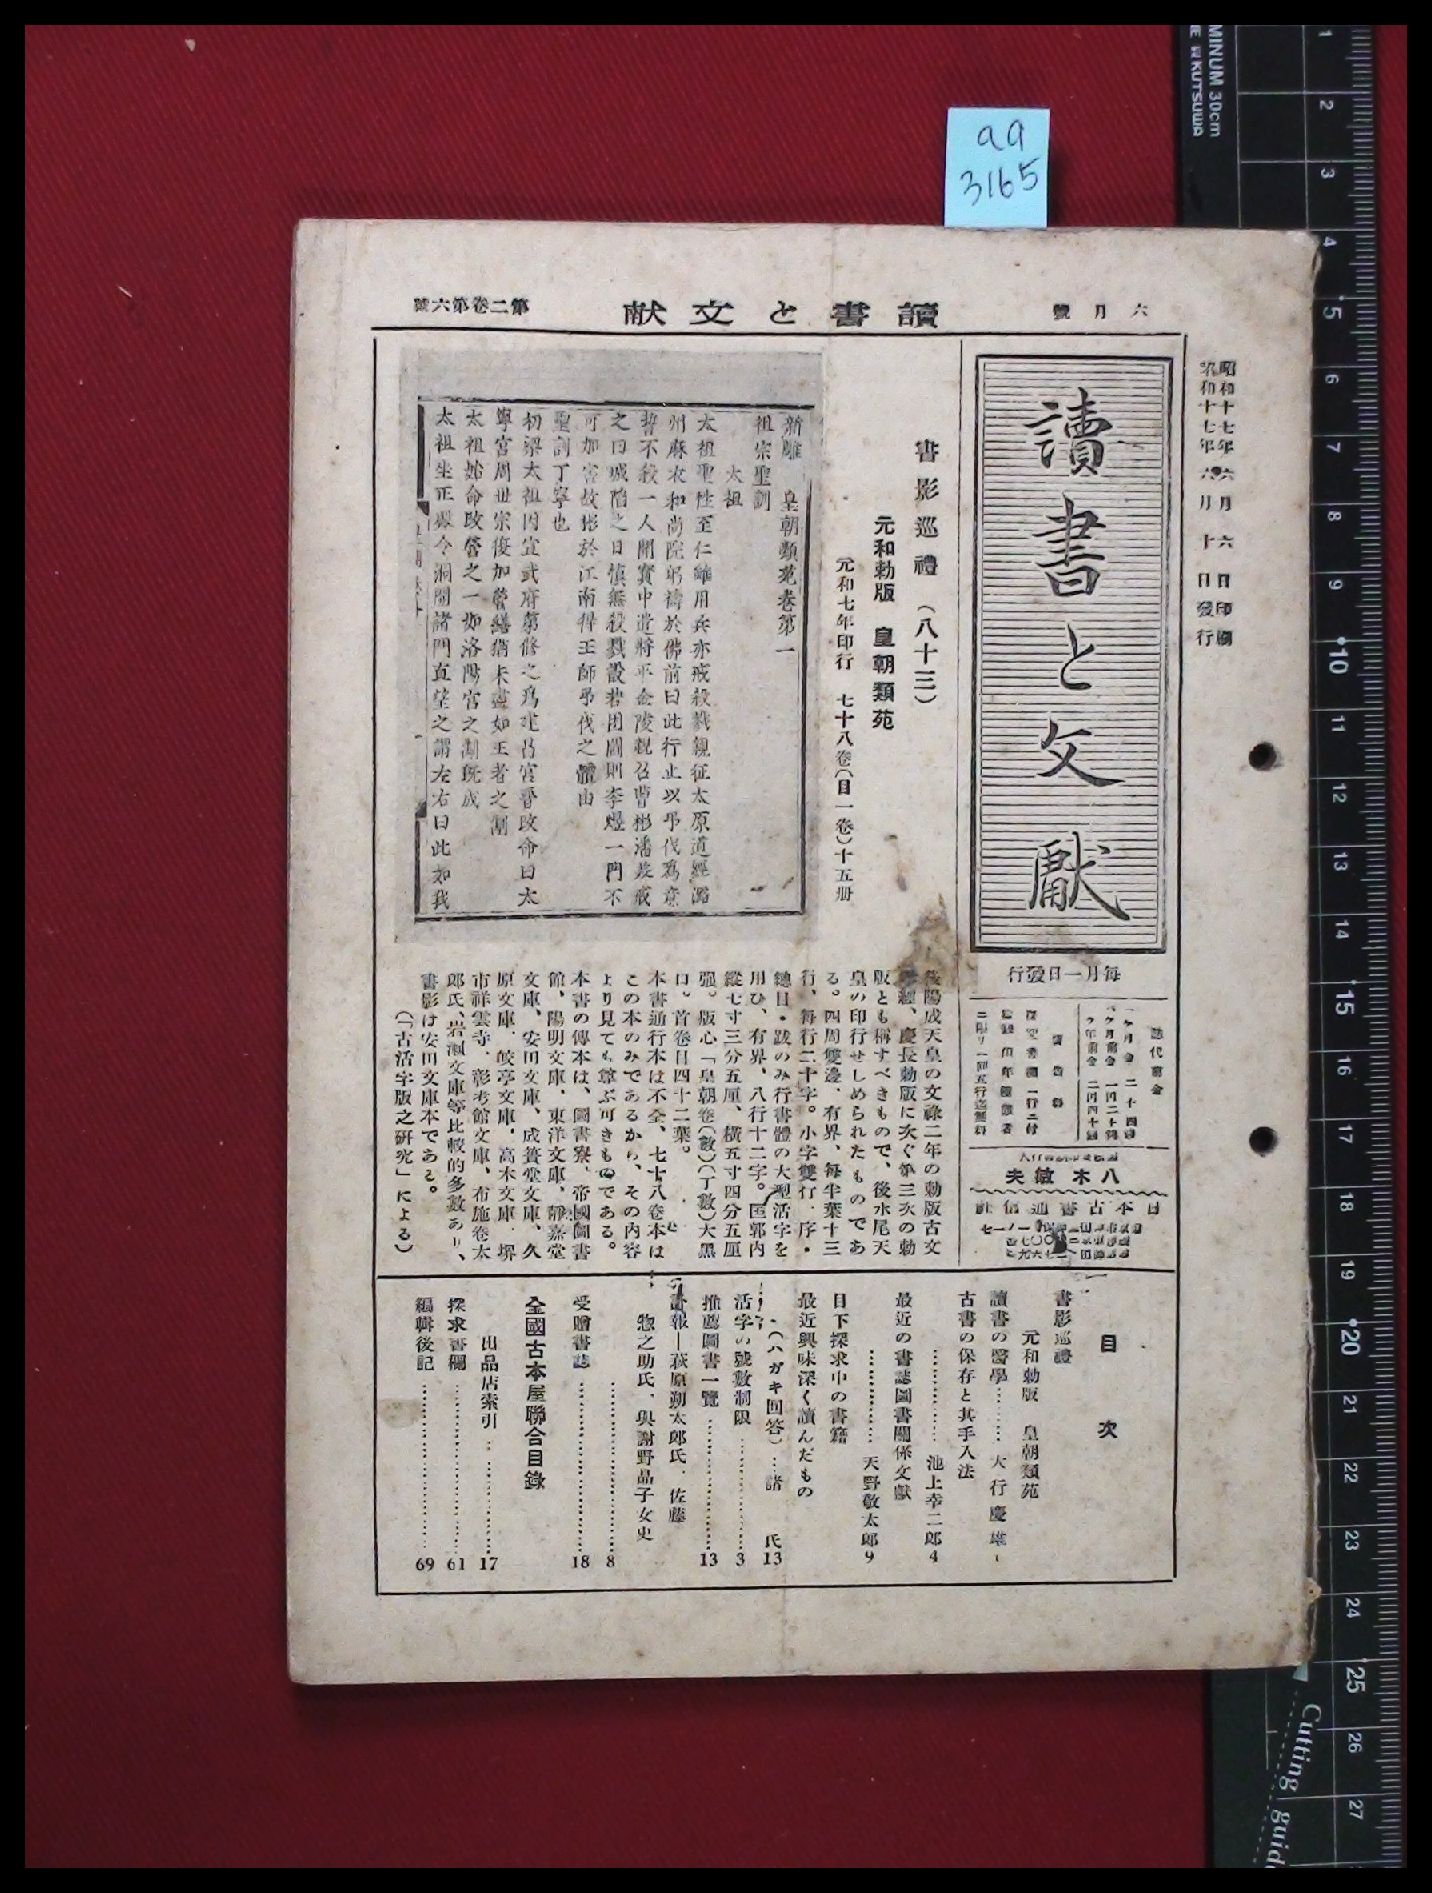 aa
3165
六月號
讀書と文献
第二卷第六號
昭和十七年六月六日印刷
昭和十七年六月十日發行
讀書と文獻
每月一日發行
八木敏夫
日本古書通信社
書影巡禮（八十三）
元和勅版 皇朝類苑
元和七年印行 七十八卷（目一卷）十五册
新雕 皇朝類苑卷第一
祖宗聖訓
太祖
太祖聖性至仁雖用兵亦戒殺戮親征太原道經潞
州麻衣和尚院躬禱於佛前曰此行止以弔伐爲意
誓不殺一人開寶中遣將平金陵親召曹彬潘美戒
之曰城陷之日愼無殺戮設若困鬪則李煜一門不
可加害故彬於江南得王師弔伐之體由
聖訓丁寧也
初梁太祖因宣武府第修之爲建昌宮晉改命曰太
寧宮周世宗復加營繕猶未盡如王者之制
太祖始命改營之一如洛陽宮之制既成
太祖坐正殿令洞開諸門直望之謂左右曰此如我
後陽成天皇の文祿二年の勅版古文
孝經、慶長勅版に次ぐ第三次の勅
版とも稱すべきもので、後水尾天
皇の印行せしめられたものであ
る。四周雙邊、有界、每半葉十三
行、每行二十字。小字雙行、序・
總目・跋のみ行書體の大型活字を
用ひ、有界、八行十二字。匡郭内
縱七寸三分五厘、橫五寸四分五厘
强。版心「皇朝卷（數）（丁數）大黑
口。首卷目四十二葉。
本書通行本は不全、七十八卷本は
この本のみであるから、その内容
より見ても尊ぶ可きものである。
本書の傳本は、圖書寮、帝國圖書
館、陽明文庫、東洋文庫、靜嘉堂
文庫、安田文庫、成簣堂文庫、久
原文庫、皎亭文庫、高木文庫、堺
市祥雲寺、彰考館文庫、布施卷太
郎氏、岩瀨文庫等比較的多數あり、
書影は安田文庫本である。
（「古活字版之硏究」による）
目次
書影巡禮
元和勅版 皇朝類苑
讀書の醫學………大行慶雄 1
古書の保存と其手入法
…………池上幸二郎 4
最近の書誌圖書關係文獻
…………天野敬太郎 9
目下探求中の書籍
最近興味深く讀んだもの
（ハガキ回答）…諸氏 13
活字の號數制限…………3
推薦圖書一覽…………13
訃報―萩原朔太郎氏、佐藤
惣之助氏、與謝野晶子女史
…………8
受贈書誌…………18
全國古本屋聯合目錄
出品店索引…………17
探求書欄…………61
編輯後記…………69
MINUM 30cm
KUTSUWA
1
2
3
4
5
6
7
8
9
10
11
12
13
14
15
16
17
18
19
20
21
22
23
24
25
26
27
Cutting guid